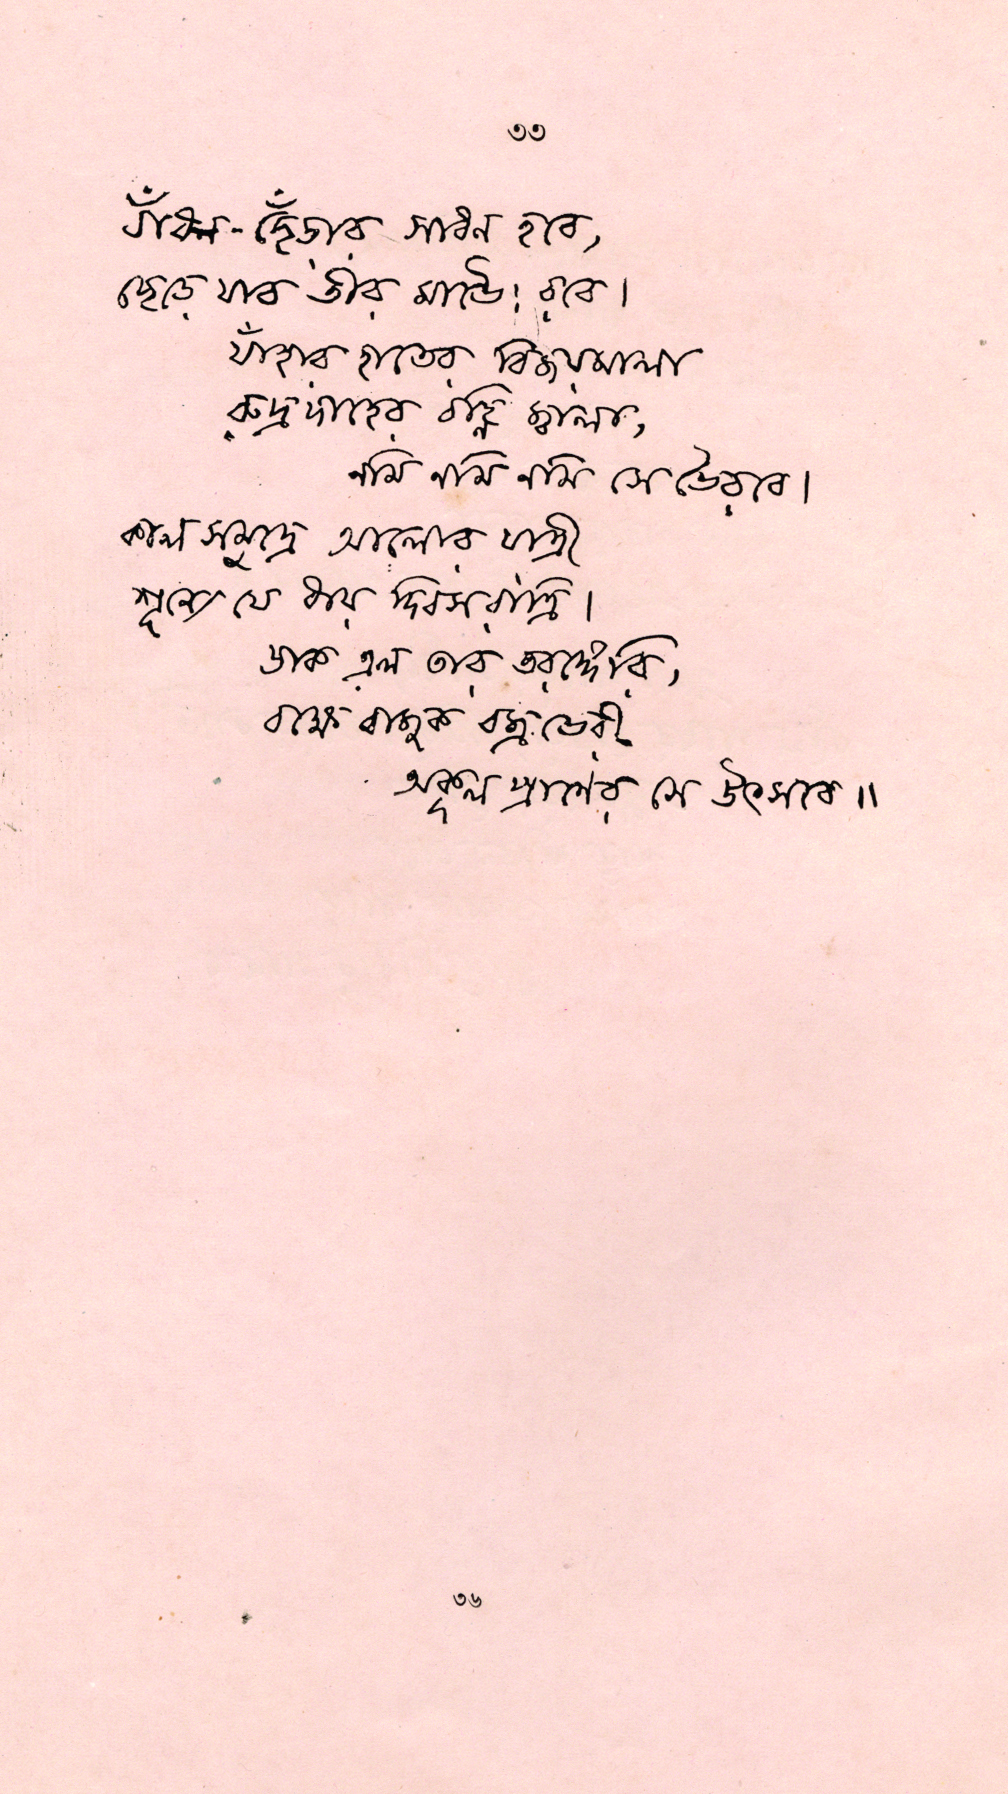 ৩৩
বাঁধন-ছেঁড়ার সাধন হবে,
ছেড়ে যাব তীর মাভৈঃ রবে।
যাঁহার হাতের বিজয়মালা
রুদ্রদাহের বহ্নি জ্বালা,
নমি নমি নমি সে ভৈরবে।
কাল সমুদ্রে আলোর যাত্রী
শূন্যে যে ধায় দিবসরাত্রি।
ডাক এল তার তরঙ্গেরি,
বাক্ষে বাজুক বজ্রভেরী
অকূল প্রাণের সে উৎসবে॥
৩৬